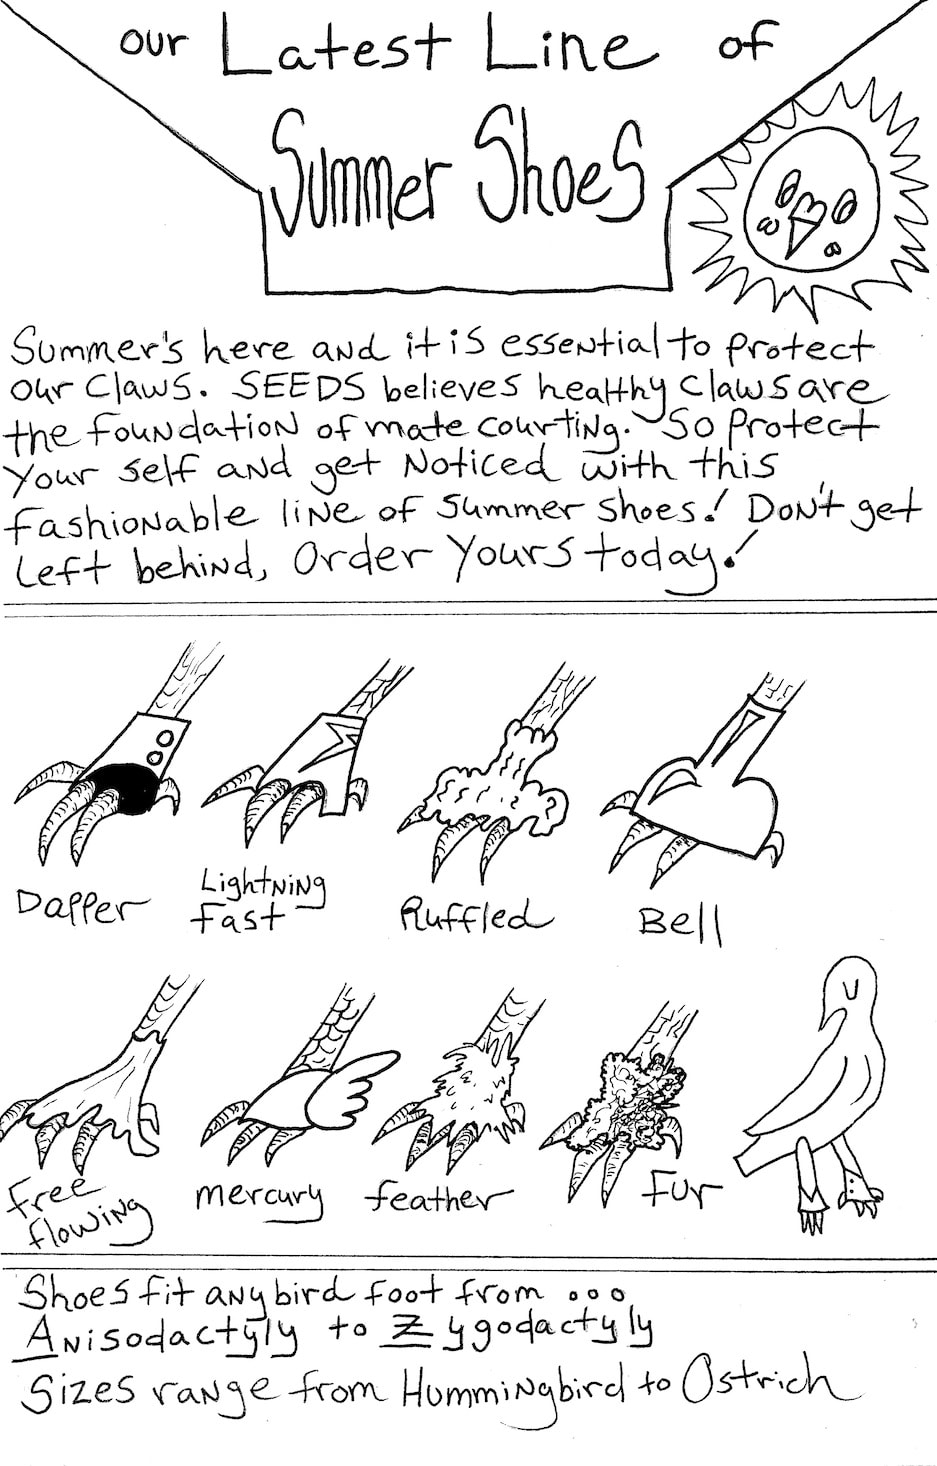 our Latest Line of
Summer Shoes
Summer's here and it is essential to protect
our claws. SEEDS believes healthy claws are
the foundation of mate courting. So protect
your self and get noticed with this
fashionable line of summer shoes! Don't get
left behind, Order yours today!
Dapper
Lightning
fast
Ruffled
Bell
free
flowing
mercury
feather
fur
Shoes fit any bird foot from ...
Anisodactyly to Zygodactyly
Sizes range from Hummingbird to Ostrich